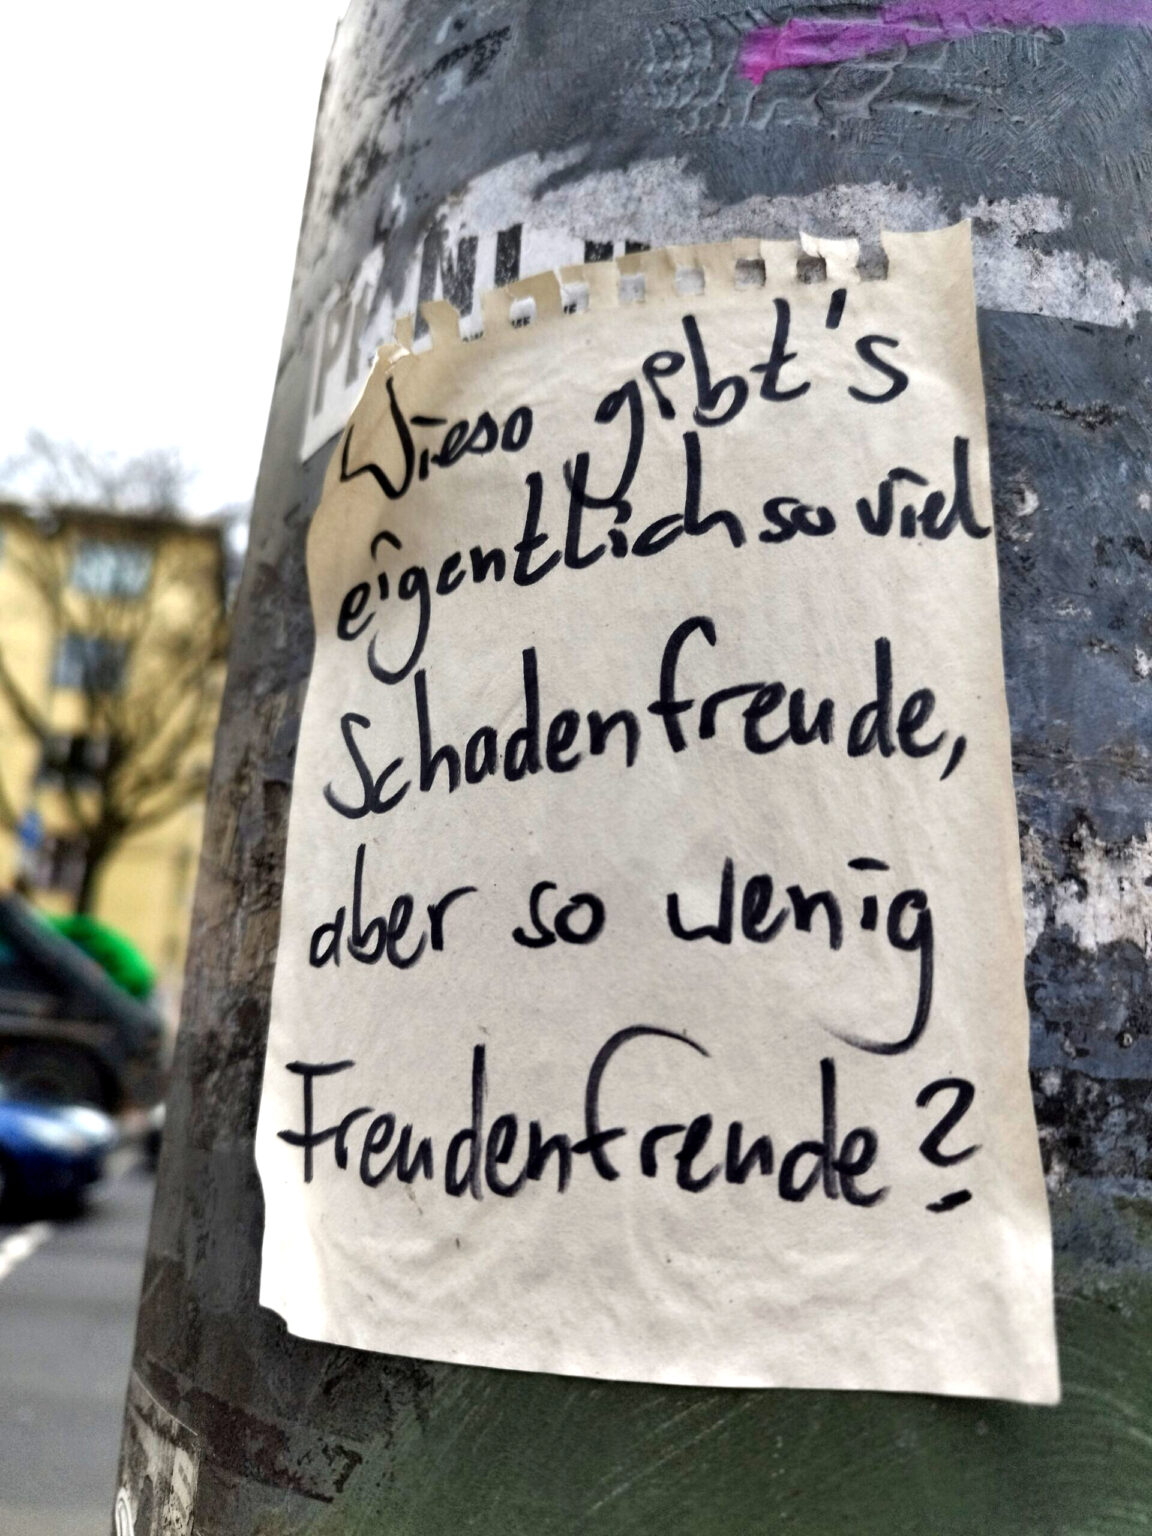 Wieso gibt's
eigentlich so viel
Schadenfreude,
aber so wenig
Freudenfreude?